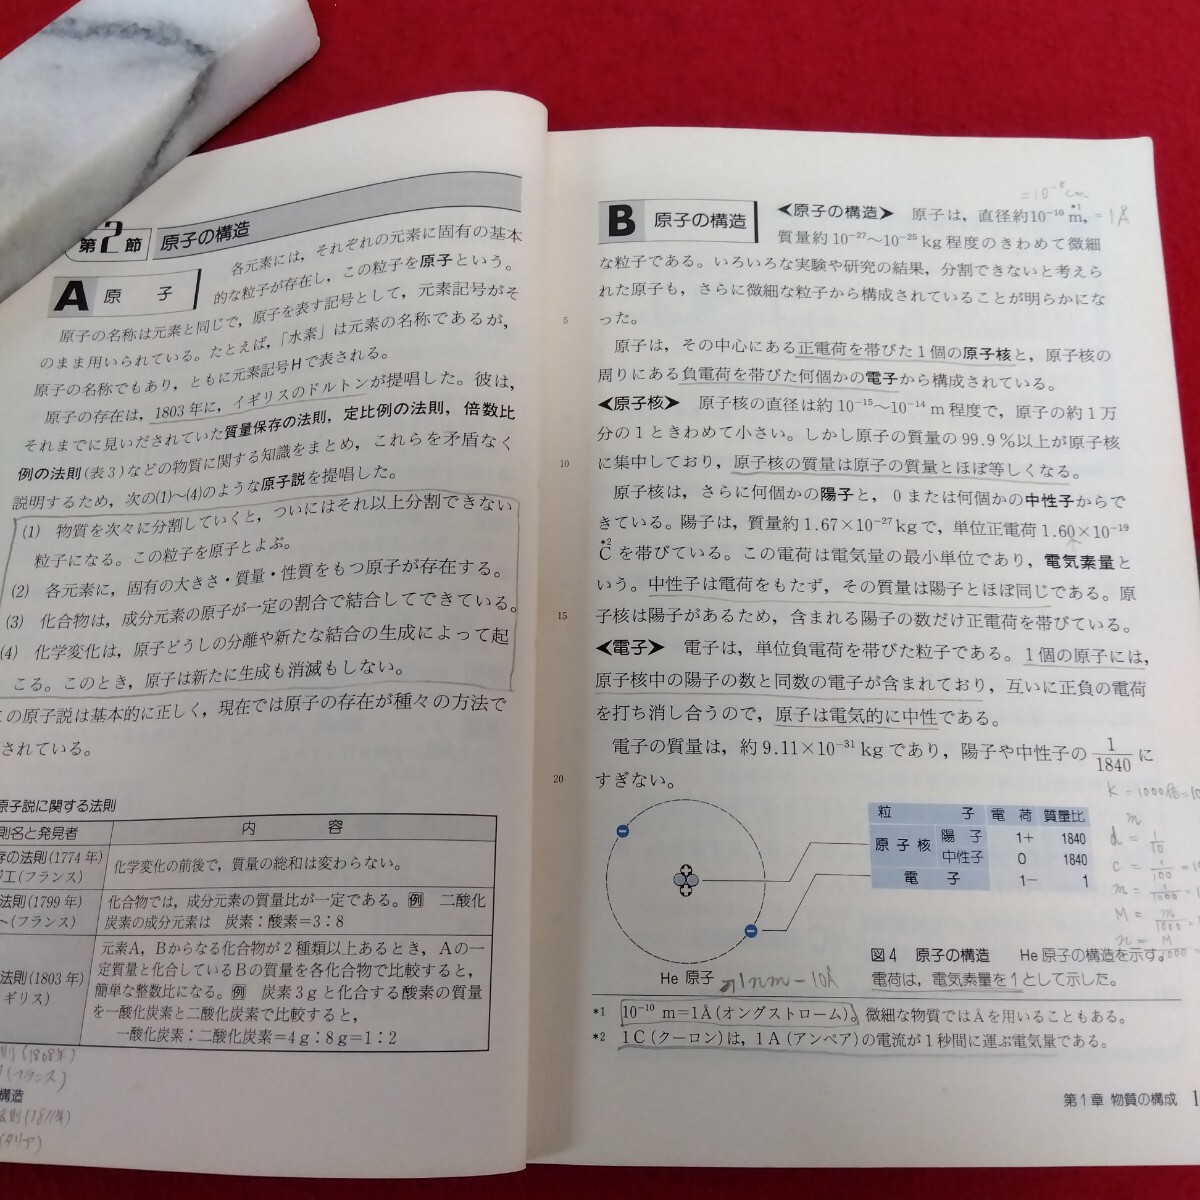 第2節 原子の構造
A 原子
各元素には，それぞれの元素に固有の基本
的な粒子が存在し，この粒子を原子という。
原子の名称は元素と同じで，原子を表す記号として，元素記号がそ
のまま用いられている。たとえば，「水素」は元素の名称であるが，
原子の名称でもあり，ともに元素記号Hで表される。
原子の存在は，1803年に，イギリスのドルトンが提唱した。彼は，
それまでに見いだされていた質量保存の法則，定比例の法則，倍数比
例の法則(表3)などの物質に関する知識をまとめ，これらを矛盾なく
説明するため，次の(1)～(4)のような原子説を提唱した。
(1) 物質を次々に分割していくと，ついにはそれ以上分割できない
粒子になる。この粒子を原子とよぶ。
(2) 各元素に，固有の大きさ・質量・性質をもつ原子が存在する。
(3) 化合物は，成分元素の原子が一定の割合で結合してできている。
(4) 化学変化は，原子どうしの分離や新たな結合の生成によって起
こる。このとき，原子は新たに生成も消滅もしない。
の原子説は基本的に正しく，現在では原子の存在が種々の方法で
されている。
原子説に関する法則
則名と発見者 内容
存の法則(1774年)
ジエ(フランス)
化学変化の前後で，質量の総和は変わらない。
法則(1799年)
ト(フランス)
化合物では，成分元素の質量比が一定である。例 二酸化
炭素の成分元素は 炭素：酸素＝3：8
法則(1803年)
ギリス)
元素A，Bからなる化合物が2種類以上あるとき，Aの一
定質量と化合しているBの質量を各化合物で比較すると，
簡単な整数比になる。例 炭素3gと化合する酸素の質量
を一酸化炭素と二酸化炭素で比較すると，
一酸化炭素：二酸化炭素＝4g：8g＝1：2
則(1808年)
(フランス)
構造
則(1811年)
タリア)
5
10
15
20
=10⁻⁸cm
B 原子の構造
＜原子の構造＞ 原子は，直径約10⁻¹⁰ m，*1 =1Å
質量約10⁻²⁷～10⁻²⁵ kg程度のきわめて微細
な粒子である。いろいろな実験や研究の結果，分割できないと考えら
れた原子も，さらに微細な粒子から構成されていることが明らかにな
った。
原子は，その中心にある正電荷を帯びた1個の原子核と，原子核の
周りにある負電荷を帯びた何個かの電子から構成されている。
＜原子核＞ 原子核の直径は約10⁻¹⁵～10⁻¹⁴ m程度で，原子の約1万
分の1ときわめて小さい。しかし原子の質量の99.9％以上が原子核
に集中しており，原子核の質量は原子の質量とほぼ等しくなる。
原子核は，さらに何個かの陽子と，0または何個かの中性子からで
きている。陽子は，質量約1.67×10⁻²⁷kgで，単位正電荷1.60×10⁻¹⁹
C*2を帯びている。この電荷は電気量の最小単位であり，電気素量と
いう。中性子は電荷をもたず，その質量は陽子とほぼ同じである。原
子核は陽子があるため，含まれる陽子の数だけ正電荷を帯びている。
＜電子＞ 電子は，単位負電荷を帯びた粒子である。1個の原子には，
原子核中の陽子の数と同数の電子が含まれており，互いに正負の電荷
を打ち消し合うので，原子は電気的に中性である。
電子の質量は，約9.11×10⁻³¹ kgであり，陽子や中性子の1/1840に
すぎない。
K=1000倍=10
m
d=1/10
c=1/100
m=1/1000
M=m/1000
n=M/1000
粒子 電荷 質量比
原子核 陽子 1+ 1840
中性子 0 1840
電子 1− 1
He 原子
1nm−10Å
図4 原子の構造 He原子の構造を示す。
電荷は，電気素量を1として示した。
*1 10⁻¹⁰ m＝1Å(オングストローム)。微細な物質ではÅを用いることもある。
*2 1C(クーロン)は，1A(アンペア)の電流が1秒間に運ぶ電気量である。
第1章 物質の構成 1